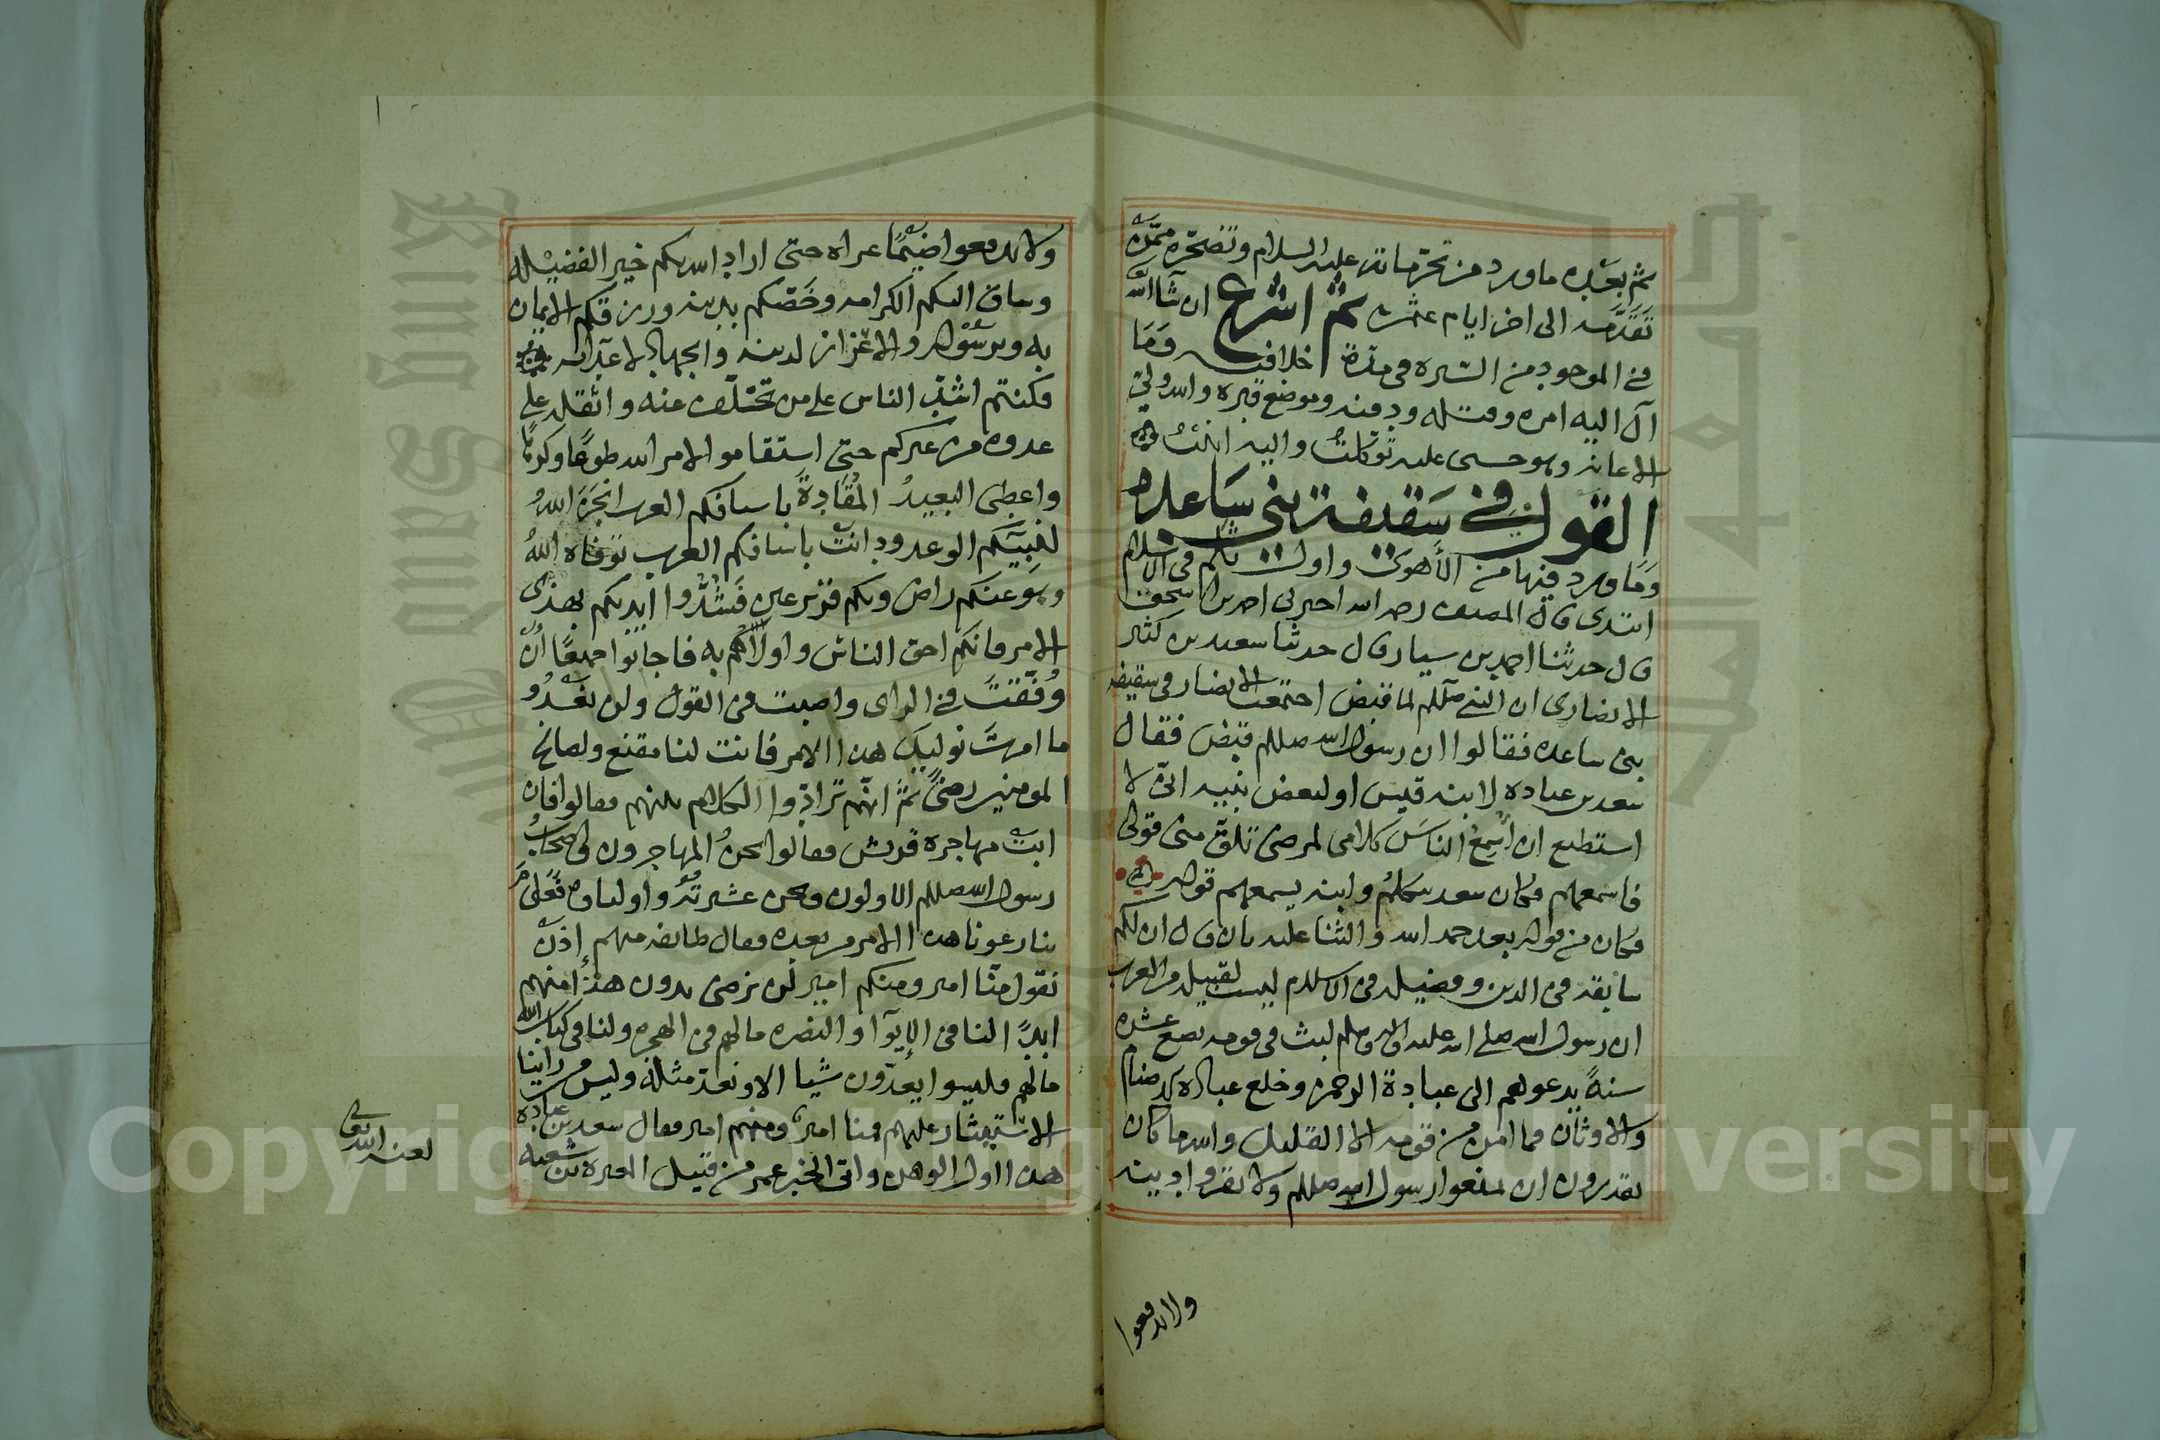 ثم بعده ما ورد من تحرماته عليه السلام وتضجره ممن
تقدمه الى اخر ايام عمره ثم اشرع ان شا الله
في الموجود من السيره في مدة خلافته وما
آل اليه امره وقتله ودفنه وموضع قبره والله ولي
الاعانه وهو حسبي عليه توكلت واليه انبت
القول في سقيفة بني ساعده
وما ورد فيها من الأهوى واول تكلم في الاسلام
ابتدى قال المصنف رحمه الله اخبرني احمد بن اسحق
قال حدثنا احمد بن سيار قال حدثنا سعيد بن كثير
الانصاري ان النبي صللم لما قبض اجتمعت الانصار في سقيفه
بني ساعده فقالوا ان رسول الله صللم قبض فقال
سعد بن عباده لابنه قيس او لبعض بنيه اني لا
استطيع ان أسمع الناس كلامي لمرضي تلق مني قولي
فاسمعهم فكان سعد يتكلم وابنه يسمعهم قوله
فكان من قوله بعد حمد الله والثنا عليه بان قال ان لكم
سابقه في الدين وفضيله في الاسلام ليست لقبيله من العرب
ان رسول الله صلى الله عليه واله وسلم لبث في قومه بضع عشره
سنةً يدعوهم الى عبادة الرحمن وخلع عباده الاصنام
والاوثان فما امن من قومه الا القليل والله ما كان
يقدرون ان يمنعوا رسول الله صللم ولا يعزوا دينه
ولا يدفعوا
ولا يدفعوا ضيمًا عراه حتى اراد الله بكم خير الفضيله
وساق اليكم الكرامه وخصكم بدينه ورزقكم الايمان
به وبرسوله والاعزاز لدينه والجهاد لاعدائه
فكنتم اشد الناس على من تخلف عنه واثقله على
عدوه من غيركم حتى استقاموا لامر الله طوعًا وكرهًا
واعطى البعيد المقادة باسيافكم العرب انجز الله
لنبيكم الوعد ودانت باسيافكم العرب توفاه الله
وهو عنكم راض وبكم قرير عين فشدوا ايديكم بهذى
الامر فانكم احق الناس واولاكم به فاجابوا جميعًا ان
وفقت في الراى واصبت في القول ولن نعدو
ما امرت نوليك هذا الامر فانت لنا مقنع ولصالح
المومنين رضىً ثم انهم ترادوا الكلام بينهم فقالوا فان
ابت مهاجرة قريش فقالوا نحن المهاجرون واصحاب
رسول الله صللم الاولون ونحن عشيرته واولياوه فعلى م
تنازعونا هذا الامر من بعده فقال طايفه منهم إذن
نقول منا امير ومنكم امير لن نرضى بدون هذا منهم
ابدًا لنا في الإيوآ والنصره مالهم في الهجره ولنا في كتاب الله
مالهم فليسوا يعدون شيا الا ونعد مثله وليس من راينا
الاستيثار عليهم فمنا امير ومنهم امير فقال سعد بن عباده
هذا اول الوهن واتى الخبر عمر من قبيل المغيره بن شعبه
لعنه الله تعالى
King Saud University
Copyright © King Saud University